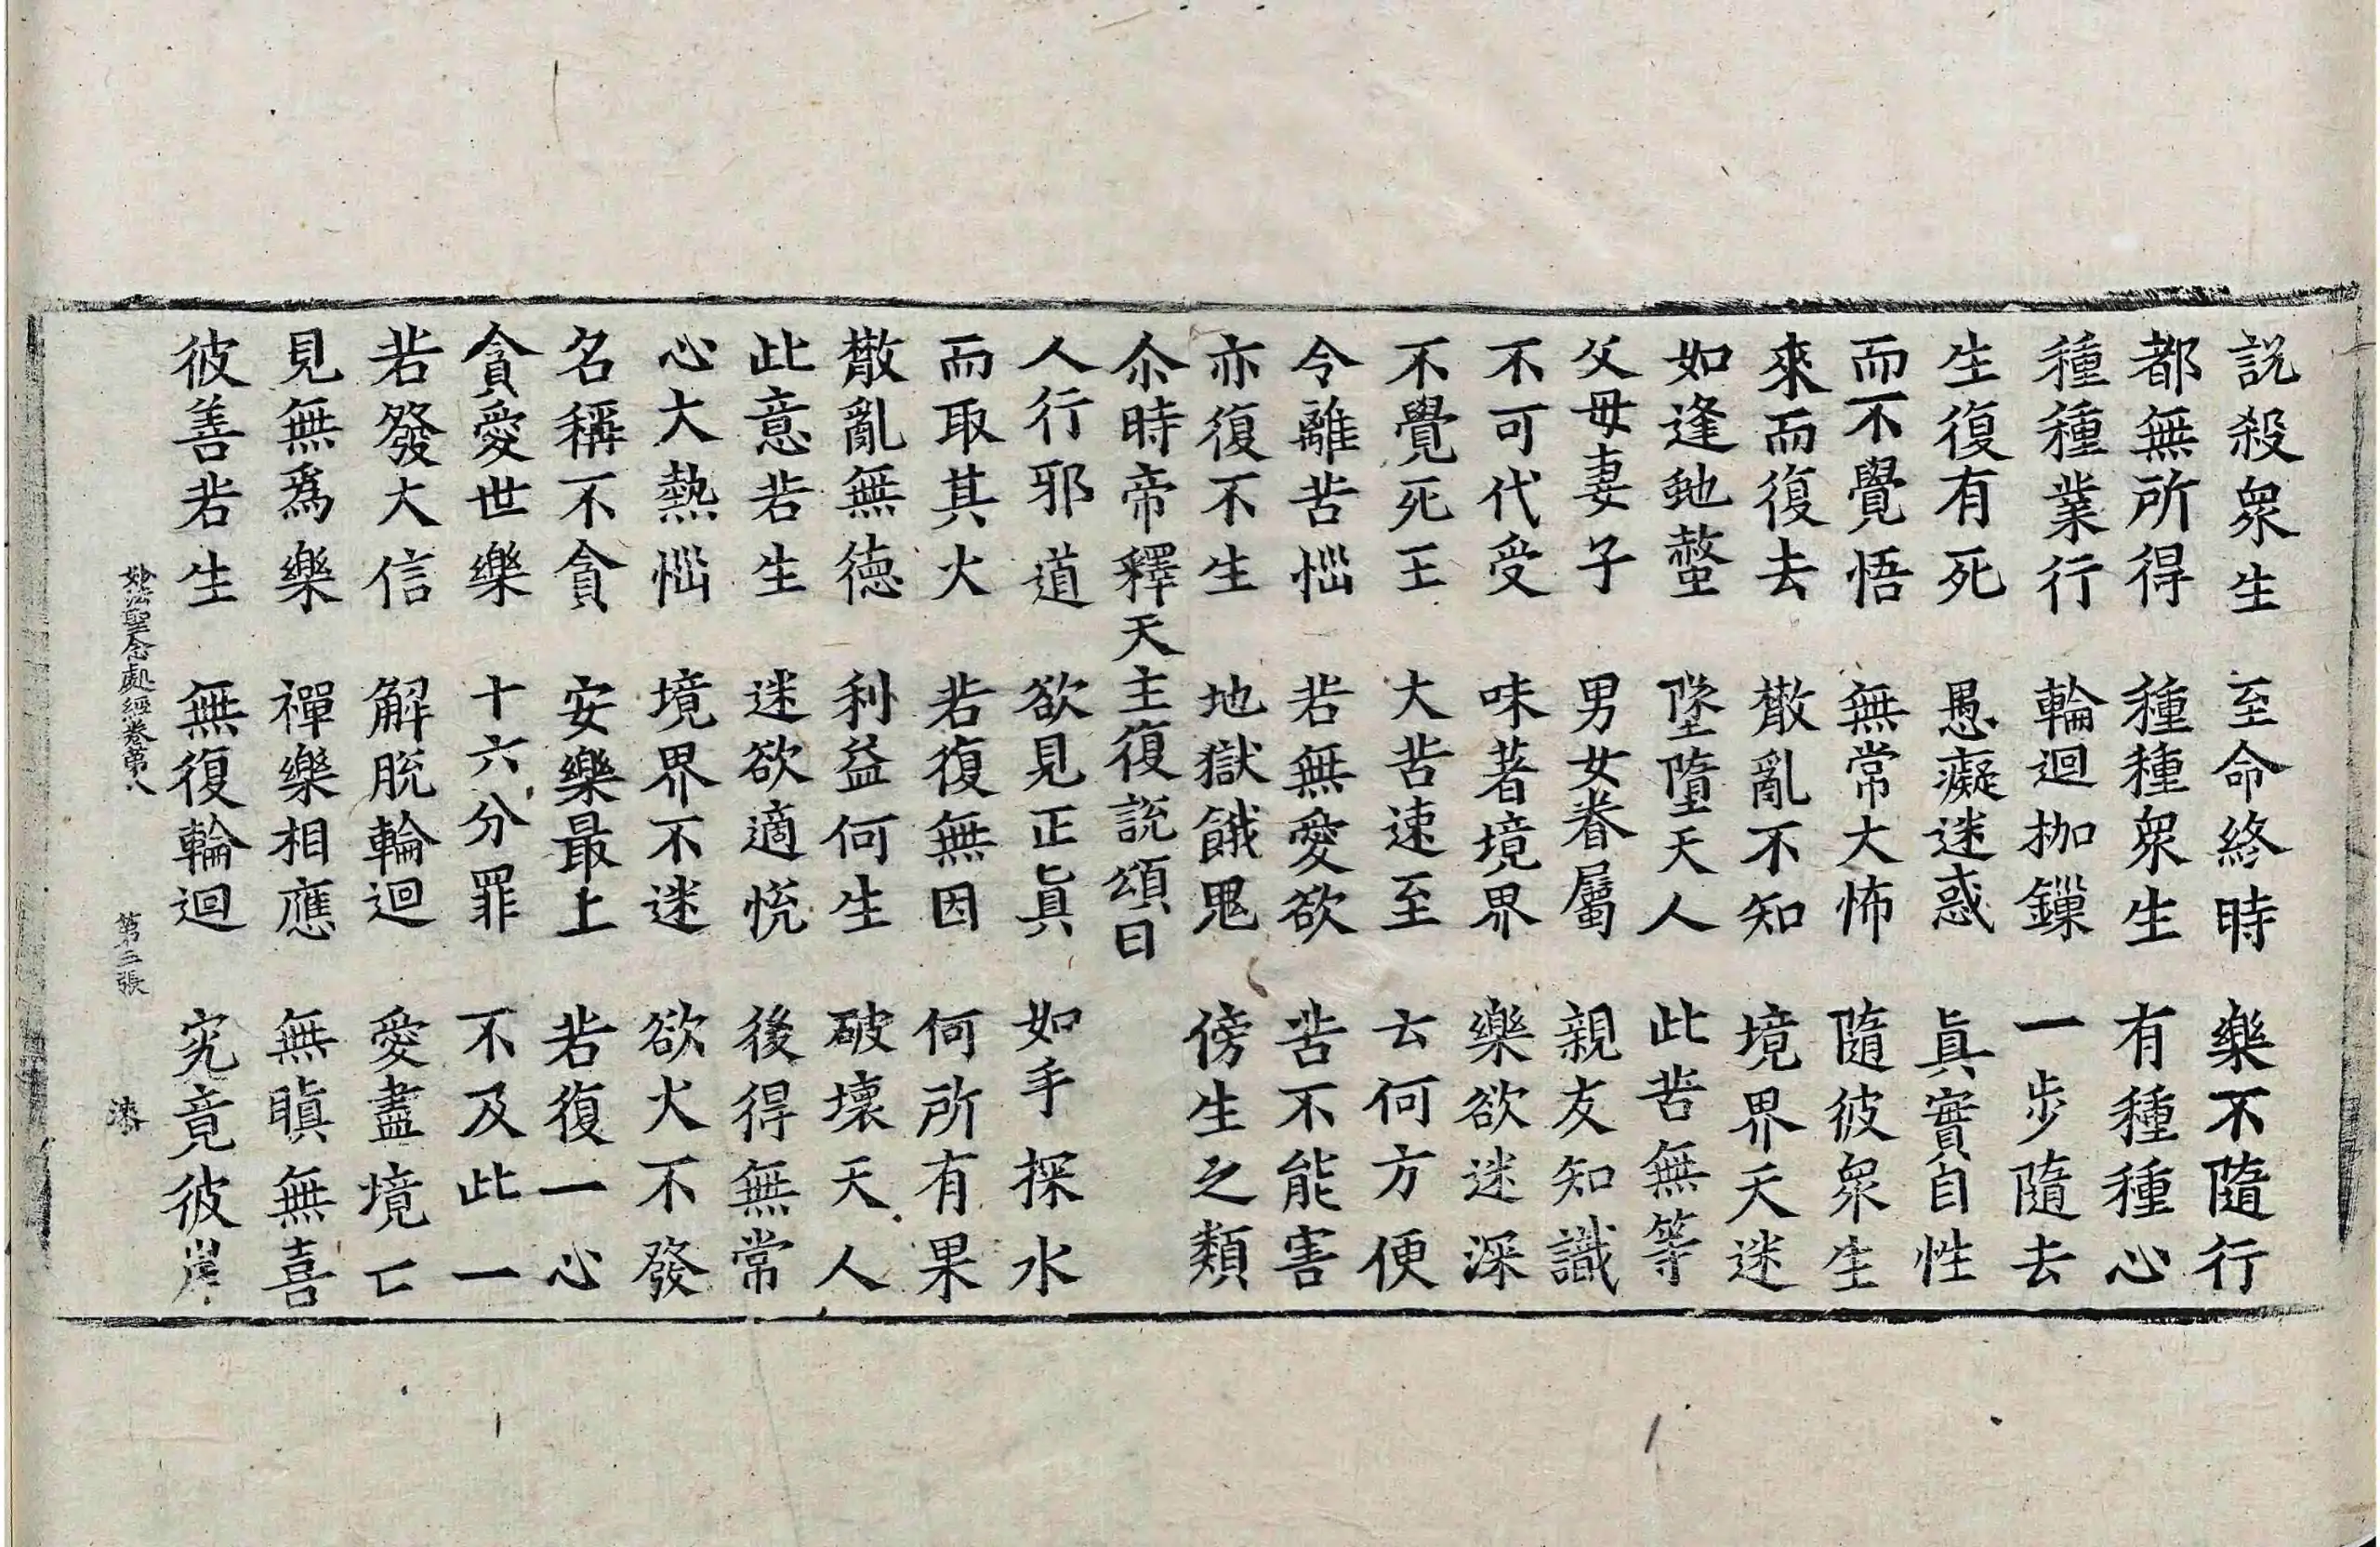 說殺眾生　至命終時　樂不隨行
都無所得　種種眾生　有種種心
種種業行　輪迴枷鏁　一步隨去
生復有死　愚癡迷惑　真實自性
而不覺悟　無常大怖　隨彼眾生
來而復去　散亂不知　境界天迷
如逢虵螫　墜墮天人　此苦無等
父母妻子　男女眷屬　親友知識
不可代受　味著境界　樂欲迷深
不覺死王　大苦速至　云何方便
令離苦惱　若無愛欲　苦不能害
亦復不生　地獄餓鬼　傍生之類
尒時帝釋天主復說頌曰
人行邪道　欲見正真　如手探水
而取其火　若復無因　何所有果
散亂無德　利益何生　破壞天人
此意若生　迷欲適悅　後得無常
心大熱惱　境界不迷　欲火不發
名稱不貪　安樂最上　若復一心
貪愛世樂　十六分罪　不及此一
若發大信　解脫輪迴　愛盡境亡
見無為樂　禪樂相應　無瞋無喜
彼善若生　無復輪迴　究竟彼岸
妙法聖念處經卷第八　第三張　漆